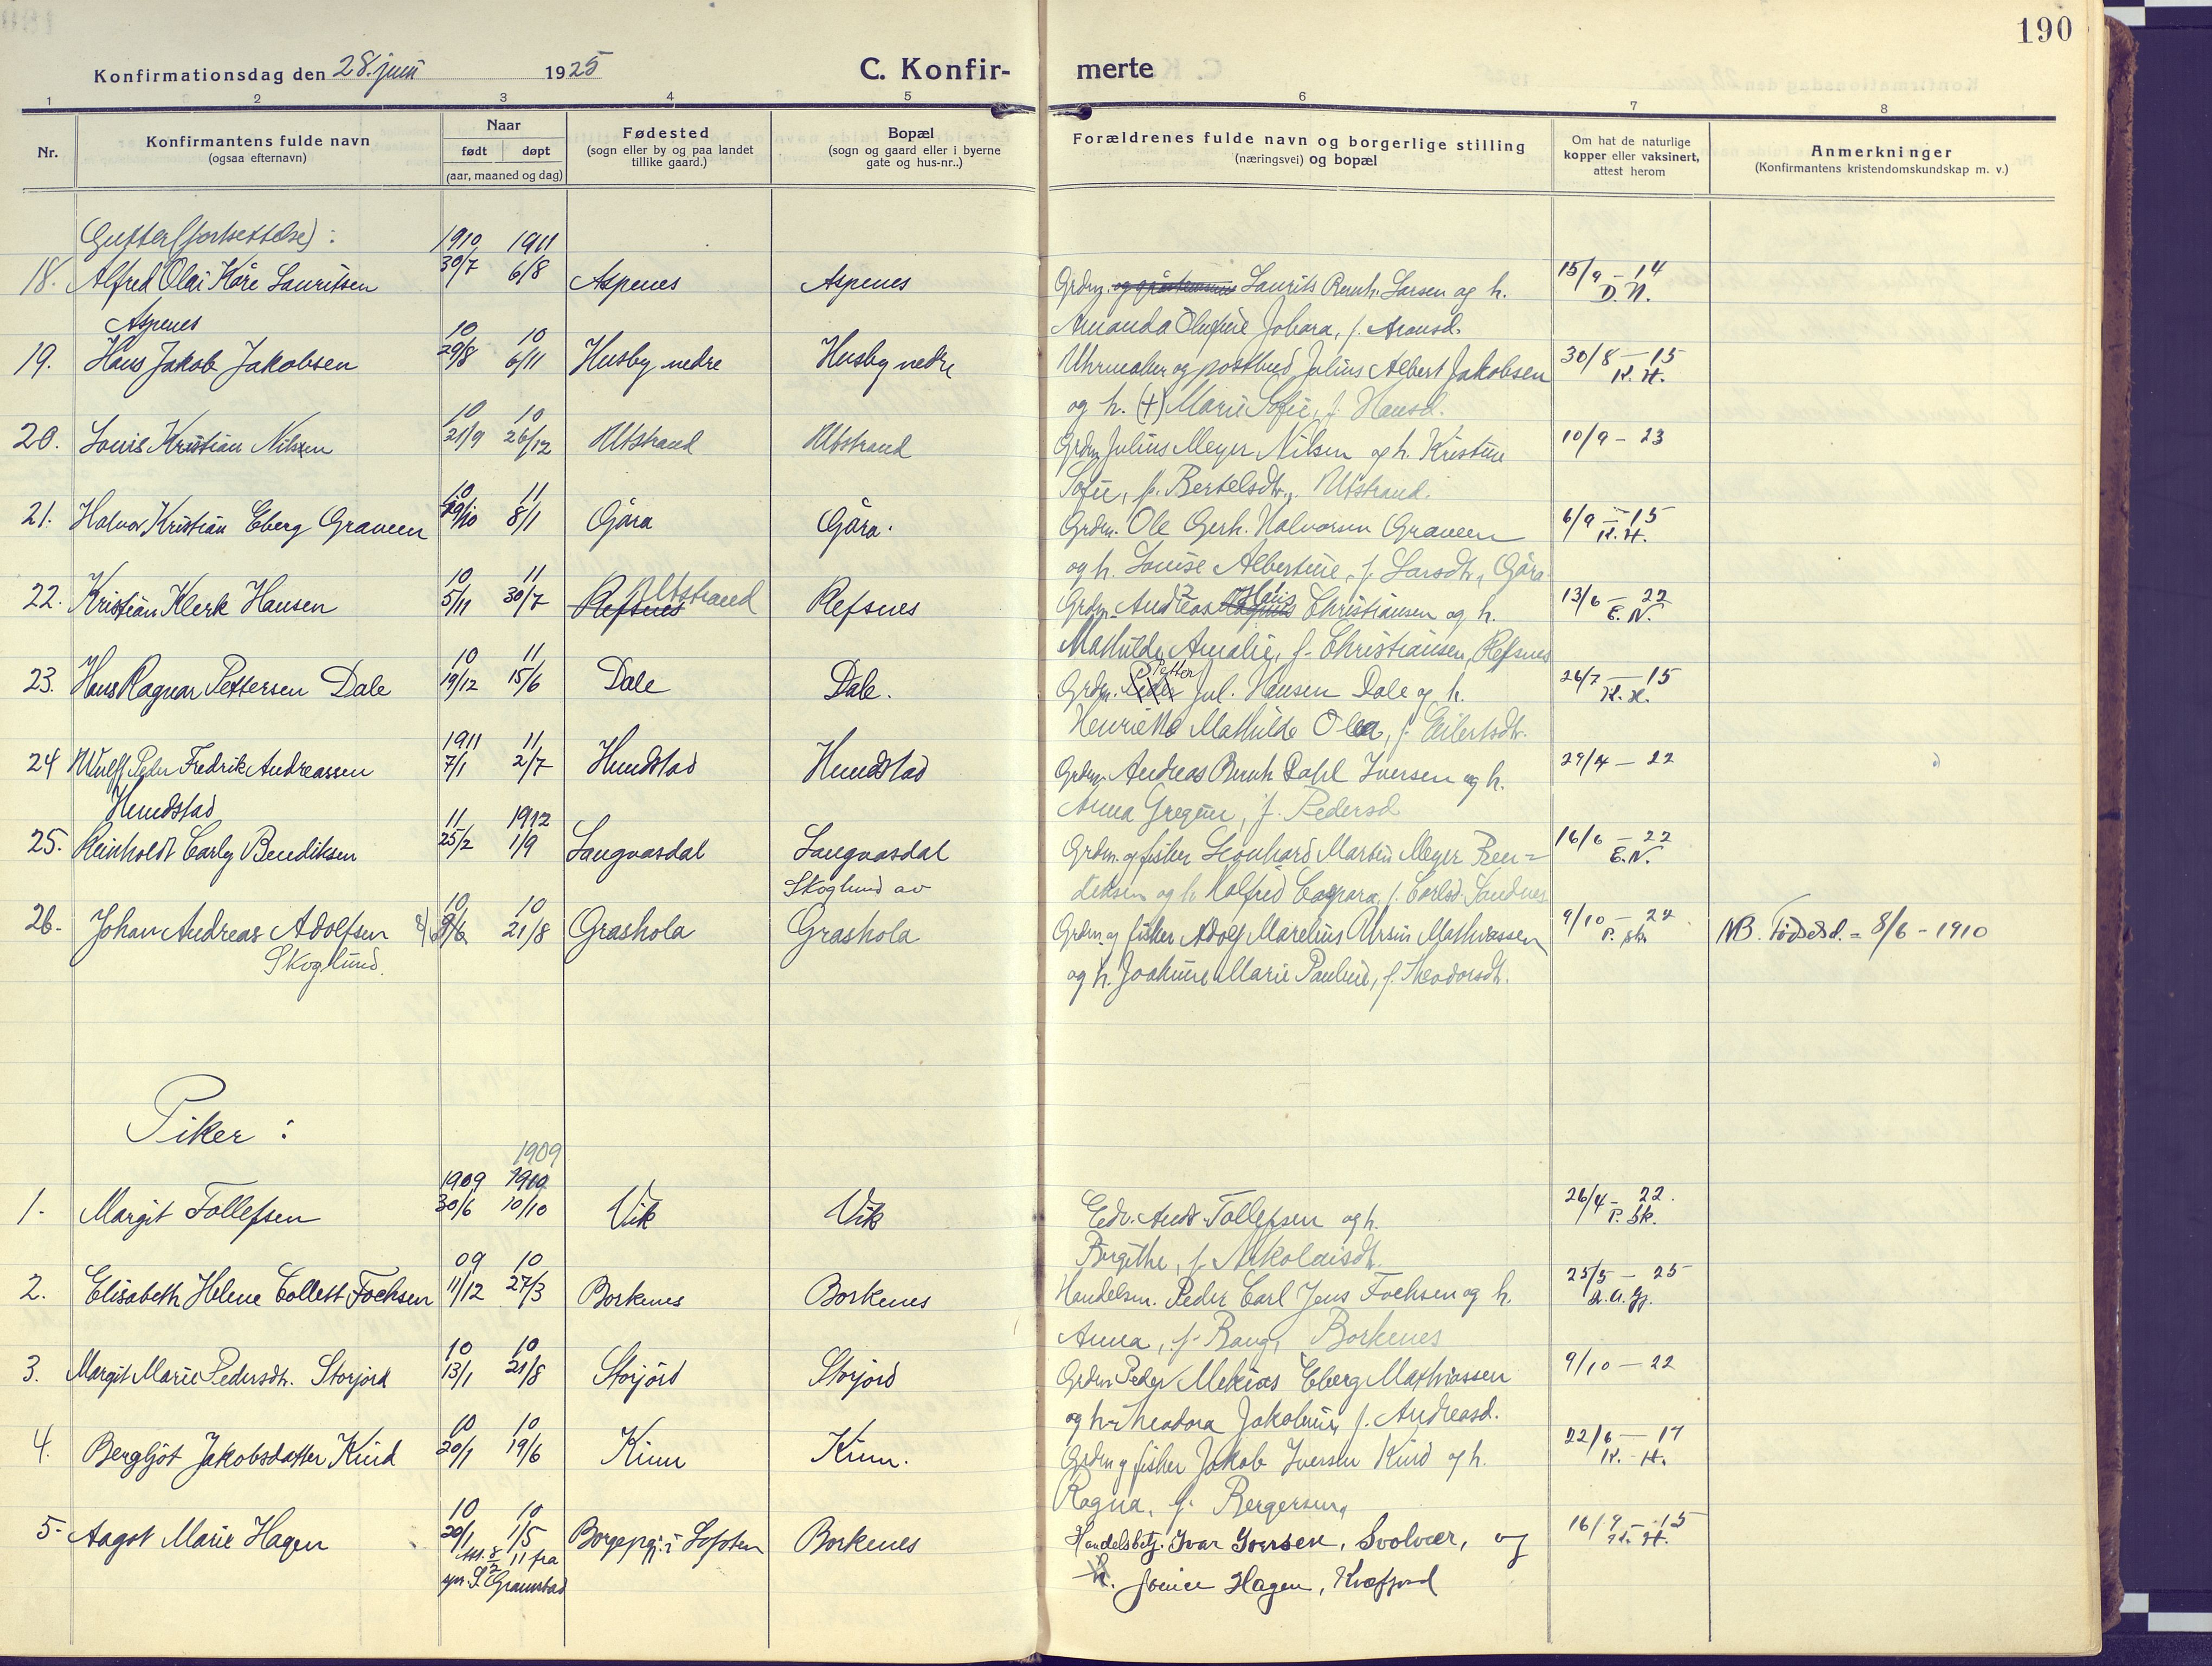 190
Konfirmationsdag den 28. juni 1925
C. Konfir- merte
1 2 3 4 5 6 7 8
Nr.
Konfirmantens fulde navn
(ogsaa efternavn)
Naar
født døpt
(aar, maaned og dag)
Fødested
(sogn eller by og paa landet
tillike gaard.)
Bopæl
(sogn og gaard eller i byerne
gate og hus-nr..)
Forældrenes fulde navn og borgerlige stilling
(næringsvei) og bopæl
Om hat de naturlige
kopper eller vaksinert,
attest herom
Anmerkninger
(Konfirmantens kristendomskundskap m. v.)
Gutter (fortsettelse):
1910 1911
18. Alfred Olai Kåre Lauritsen 30/7 6/8 Aspenes Aspenes Grdm. Laurits Bernh. Larsen og h. 15/9 - 14
D. N.
Aspenes Amanda Olufine Johara, f. Aronsd.
10 10
19. Hans Jakob Jakobsen 29/8 6/11 Husby nedre Husby nedre Uhrmaker og postbud Julius Albert Jakobsen 30/8 - 15
K. H.
og h. (+) Marie Sofie, f. Hansd.
10 10
20. Louis Kristian Nilsen 21/9 26/12 Utstrand Utstrand Grdm. Julius Meyer Nilsen og h. Kristine 10/9 - 23
Sofie, f. Bertelsdtr., Utstrand.
10 11
21. Halvor Kristian Eberg Graveen 29/10 8/1 Gåra Gåra. Grdm. Ole Gerh. Halvorsen Graveen 6/9 - 15
K. H.
og h. Louise Albertine, f. Larsdtr., Gåra
10 11
Utstrand
22. Kristian Klerk Hansen 5/11 30/7 Refsnes Refsnes Grdm. Andreas Hans Christiansen og h. 13/6 - 22
E. N.
Mathilde Amalie, f. Christiansen, Refsnes
10 11
Petter
23. Hans Ragnar Pettersen Dale 19/12 15/6 Dale Dale. Grdm. Peder Jul. Hansen Dale og h. 26/7 - 15
K. H.
Henriette Mathilde Olea, f. Eilertsdtr.
1911 11
24 Wulff Peder Fredrik Andreassen 7/1 2/7 Hundstad Hundstad Grdm. Andreas Bernh. Dahl Iversen og h. 29/4 - 22
Hundstad Anna Gregine, f. Pedersd.
11 1912
25. Reinholdt Carly Bendiksen 25/2 1/9 Langvasdal Langvasdal Grdm. og fisker Leonhard Martin Meyer Ben= 16/6 - 22
E. N.
Skoglund av
diksen og h. Halfrid Caspara, f. Carlsd. Sandnes
10 10
26. Johan Andreas Adolfsen 8/6 9/6 21/8 Grashola Grashola Grdm. og fisker Adolf Marelius Ursin Mathiassen 9/10 - 22 NB. Fødselsd. = 8/6 - 1910
P. Sk.
Skoglund. og h. Joakime Marie Pauline, f. Theodorsdtr.
Piker:
1909
1909 1910
1. Margit Tollefsen 30/6 10/10 Vik Vik Edv. Andr. Tollefsen og h. 26/4 - 22.
P. Sk.
Birgithe, f. Nikolaisdtr.
09 10
2. Elisabeth Helene Collett Fochsen 11/12 27/3 Borkenes Borkenes Handelsm. Peder Carl Jens Fochsen og h. 25/5 - 25
Anna, f. Bang, Borkenes
10 10
3. Margit Marie Pedersdtr. Storjord 13/1 21/8 Storjord Storjord Grdm. Peder Mekias Eberg Mathiassen 9/10 - 22
og h. Theodora Jakobine, f. Andreasd.
10 10
4. Bergljot Jakobsdatter Kind 20/1 19/6 Kinn Kinn. Grdm. og fisker Jakob Iversen Kind og h. 22/6 - 17
K. H.
Ragna, f. Bergersen,
10 10
5. Aagot Marie Hagen 20/1 1/5 Borgepgj. i Lofoten Borkenes Handelsbetj. Ivar Iversen, Svolvær, og 16/9 - 15
K. H.
Att. 8/2 11 fra
spr. S. Grannstad
h. Jenice Hagen, Kvæfjord